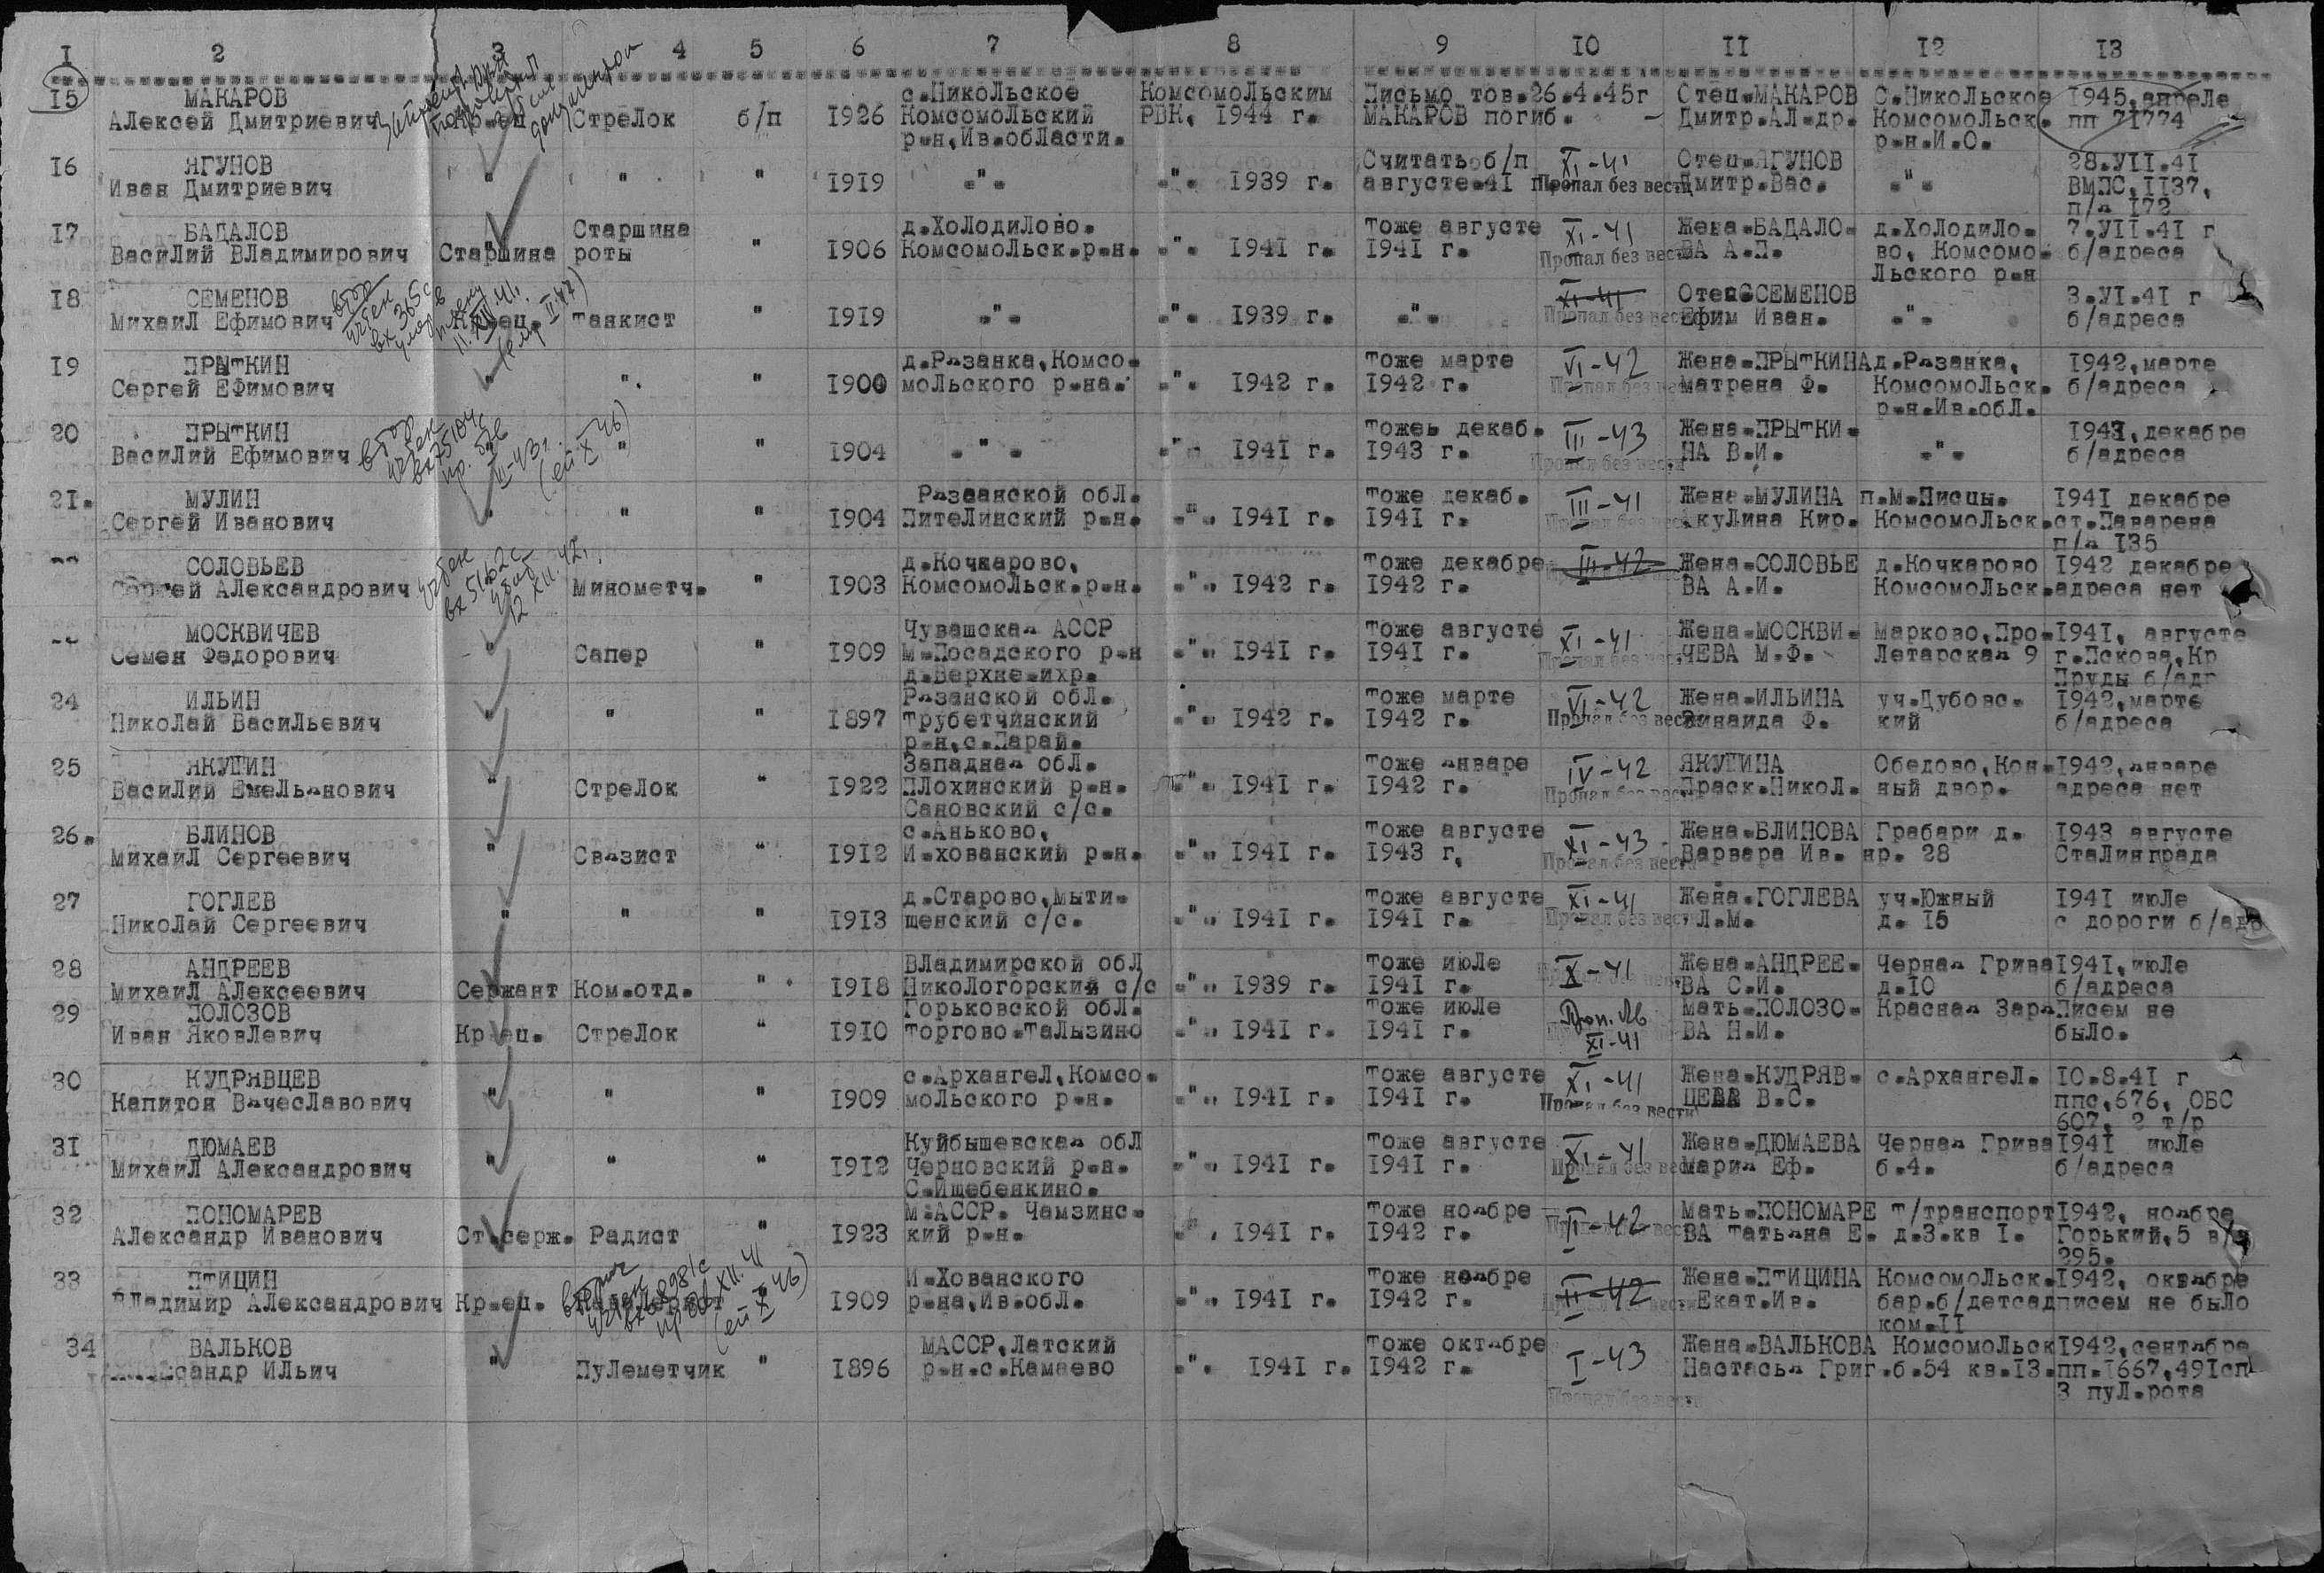 I 2 3 4 5 6 7 8 9 10 II I2 I3
I5 МАКАРОВ с.Никольское Комсомольским Письмо тов.26.4.45г Отец-МАКАРОВ С.Никольское 1945,апреле
Алексей Дмитриевич Кр-ец Стрелок б/п 1926 Комсомольский РВК, 1944 г. МАКАРОВ погиб. - Дмитр.Ал-др. Комсомольск. пп 71774
р-н,Ив.области. р-н.И.О.
I6 ЯГУНОВ Считать б/п XI-41 Отец-ЯГУНОВ 28.УII.41
Иван Дмитриевич " " " 1919 -"- -"- 1939 г. августе-41 Пропал без вести Дмитр.Вас. -"- ВМПС,II37,
п/я 172
I7 БАДАЛОВ Старшина д.Холодилово. Тоже августе XI-41 Жена-БАДАЛО- д.Холодило- 7.УII.41 г
Василий Владимирович Старшина роты " 1906 Комсомольск.р-н. -"- 1941 г. 1941 г. Пропал без вести ВА А.П. во, Комсомо- б/адреса
льского р-н
I8 СЕМЕНОВ XI-41 Отец-СЕМЕНОВ 3.УI.41 г
Михаил Ефимович Кр-ец. Танкист " 1919 -"- -"- 1939 г. -"- Пропал без вести Ефим Иван. -"- б/адреса
I9 ПРЫТКИН д.Рязанка,Комсо- Тоже марте VI-42 Жена-ПРЫТКИНА д.Рязанка, 1942,марте
Сергей Ефимович " " " 1900 мольского р-на. -"- 1942 г. 1942 г. Пропал без вести Матрена Ф. Комсомольск. б/адреса
р-н.Ив.обл.
20 ПРЫТКИН Тоже декаб. III-43 Жена-ПРЫТКИ- 1943,декабре
Василий Ефимович " " " 1904 -"- -"- 1941 г. 1943 г. Пропал без вести НА В.И. -"- б/адреса
21. МУЛИН Рязанской обл. Тоже декаб. III-41 Жена-МУЛИНА п.м.Писцы. 1941 декабре
Сергей Иванович " " " 1904 Пителинский р-н. -"- 1941 г. 1941 г. Пропал без вести Акулина Кир. Комсомольск. ст.Паварена
п/я 135
СОЛОВЬЕВ д.Кочкарово, Тоже декабре III-42 Жена-СОЛОВЬЕ д.Кочкарово 1942 декабре
Сергей Александрович Минометч. " 1903 Комсомольск.р-н. -"- 1942 г. 1942 г. ВА А.И. Комсомольск. адреса нет
МОСКВИЧЕВ Чувашская АССР Тоже августе XI-41 Жена-МОСКВИ- Марково,Про- 1941, августе
Семен Федорович " Сапер " 1909 М-Посадского р-н -"- 1941 г. 1941 г. Пропал без вести ЧЕВА М.Ф. летарская 9 г.Пскова,Кр
д.Верхне-ихр. Пруды б/адр
24 ИЛЬИН Рязанской обл. Тоже марте VI-42 Жена-ИЛЬИНА уч.Дубовс- 1942,марте
Николай Васильевич " " " 1897 Трубетчинский -"- 1942 г. 1942 г. Пропал без вести Зинаида Ф. кий б/адреса
р-н,с.Парай.
25 ЯКУШИН Западная обл. Тоже январе IV-42 ЯКУШИНА Обедово,Кон- 1942,январе
Василий Емельянович " Стрелок " 1922 Плохинский р-н. -"- 1941 г. 1942 г. Пропал без вести Праск.Никол. ный двор. адреса нет
Сановский с/с.
26. БЛИНОВ с.Аньково, Тоже августе XI-43 Жена-БЛИНОВА Грабари д. 1943 августе
Михаил Сергеевич " Связист " 1912 И-хованский р-н. -"- 1941 г. 1943 г. Пропал без вести Варвара Ив. нр. 28 Сталинграда
27 ГОГЛЕВ д.Старово,Мыти- Тоже августе XI-41 Жена-ГОГЛЕВА уч.Южный 1941 июле
Николай Сергеевич " " " 1913 щенский с/с. -"- 1941 г. 1941 г. Пропал без вести Л.М. д. 15 с дороги б/адр
28 АНДРЕЕВ Владимирской обл Тоже июле X-41 Жена-АНДРЕЕ- Черная Грива 1941,июле
Михаил Алексеевич Сержант Ком.отд. " 1918 Никологорский с/с -"- 1939 г. 1941 г. ВА С.И. д.10 б/адреса
29 ПОЛОЗОВ Горьковской обл. Тоже июле Проп. Мать-ПОЛОЗО- Красная Заря Писем не
Иван Яковлевич Кр-ец. Стрелок " 1910 Торгово-Талызино -"- 1941 г. 1941 г. XI-41 ВА Н.И. было.
30 КУДРЯВЦЕВ с.Архангел,Комсо- Тоже августе XI-41 Жена-КУДРЯВ- с.Архангел. 10.8.41 г
Капитон Вячеславович " " " 1909 мольского р-н. -"- 1941 г. 1941 г. Пропал без вести ЦЕВА В.С. ппс,676, ОБС
607, 2 т/р
31 ДЮМАЕВ Куйбышевская обл Тоже августе XI-41 Жена-ДЮМАЕВА Черная Грива 1941 июле
Михаил Александрович " " " 1912 Черновский р-н. -"- 1941 г. 1941 г. Пропал без вести Мария Еф. б.4. б/адреса
С.Ишебенкино.
32 ПОНОМАРЕВ М.АССР. Чамзинс- Тоже ноябре II-42 Мать-ПОНОМАРЕ т/транспорт 1942, ноябре
Александр Иванович Ст.серж. Радист " 1923 кий р-н. -"- 1941 г. 1942 г. ВА Татьяна Е. д.3.кв I. Горький,5 в/ч
295.
33 ПТИЦИН И-Хованского Тоже ноябре II-42 Жена-ПТИЦИНА Комсомольск. 1942, октябре
Владимир Александрович Кр-ец. 1909 р-на,Ив.обл. -"- 1941 г. 1942 г. Екат.Ив. бар.б/детсад писем не было
ком-II
34 ВАЛЬКОВ МАССР,Латский Тоже октябре I-43 Жена-ВАЛЬКОВА Комсомольск 1942,сентябре
Александр Ильич " Пулеметчик " 1896 р-н.с.Камаево -"- 1941 г. 1942 г. Пропал без вести Настасья Григ. б.54 кв.13. пп.1667,491сп
3 пул.рота